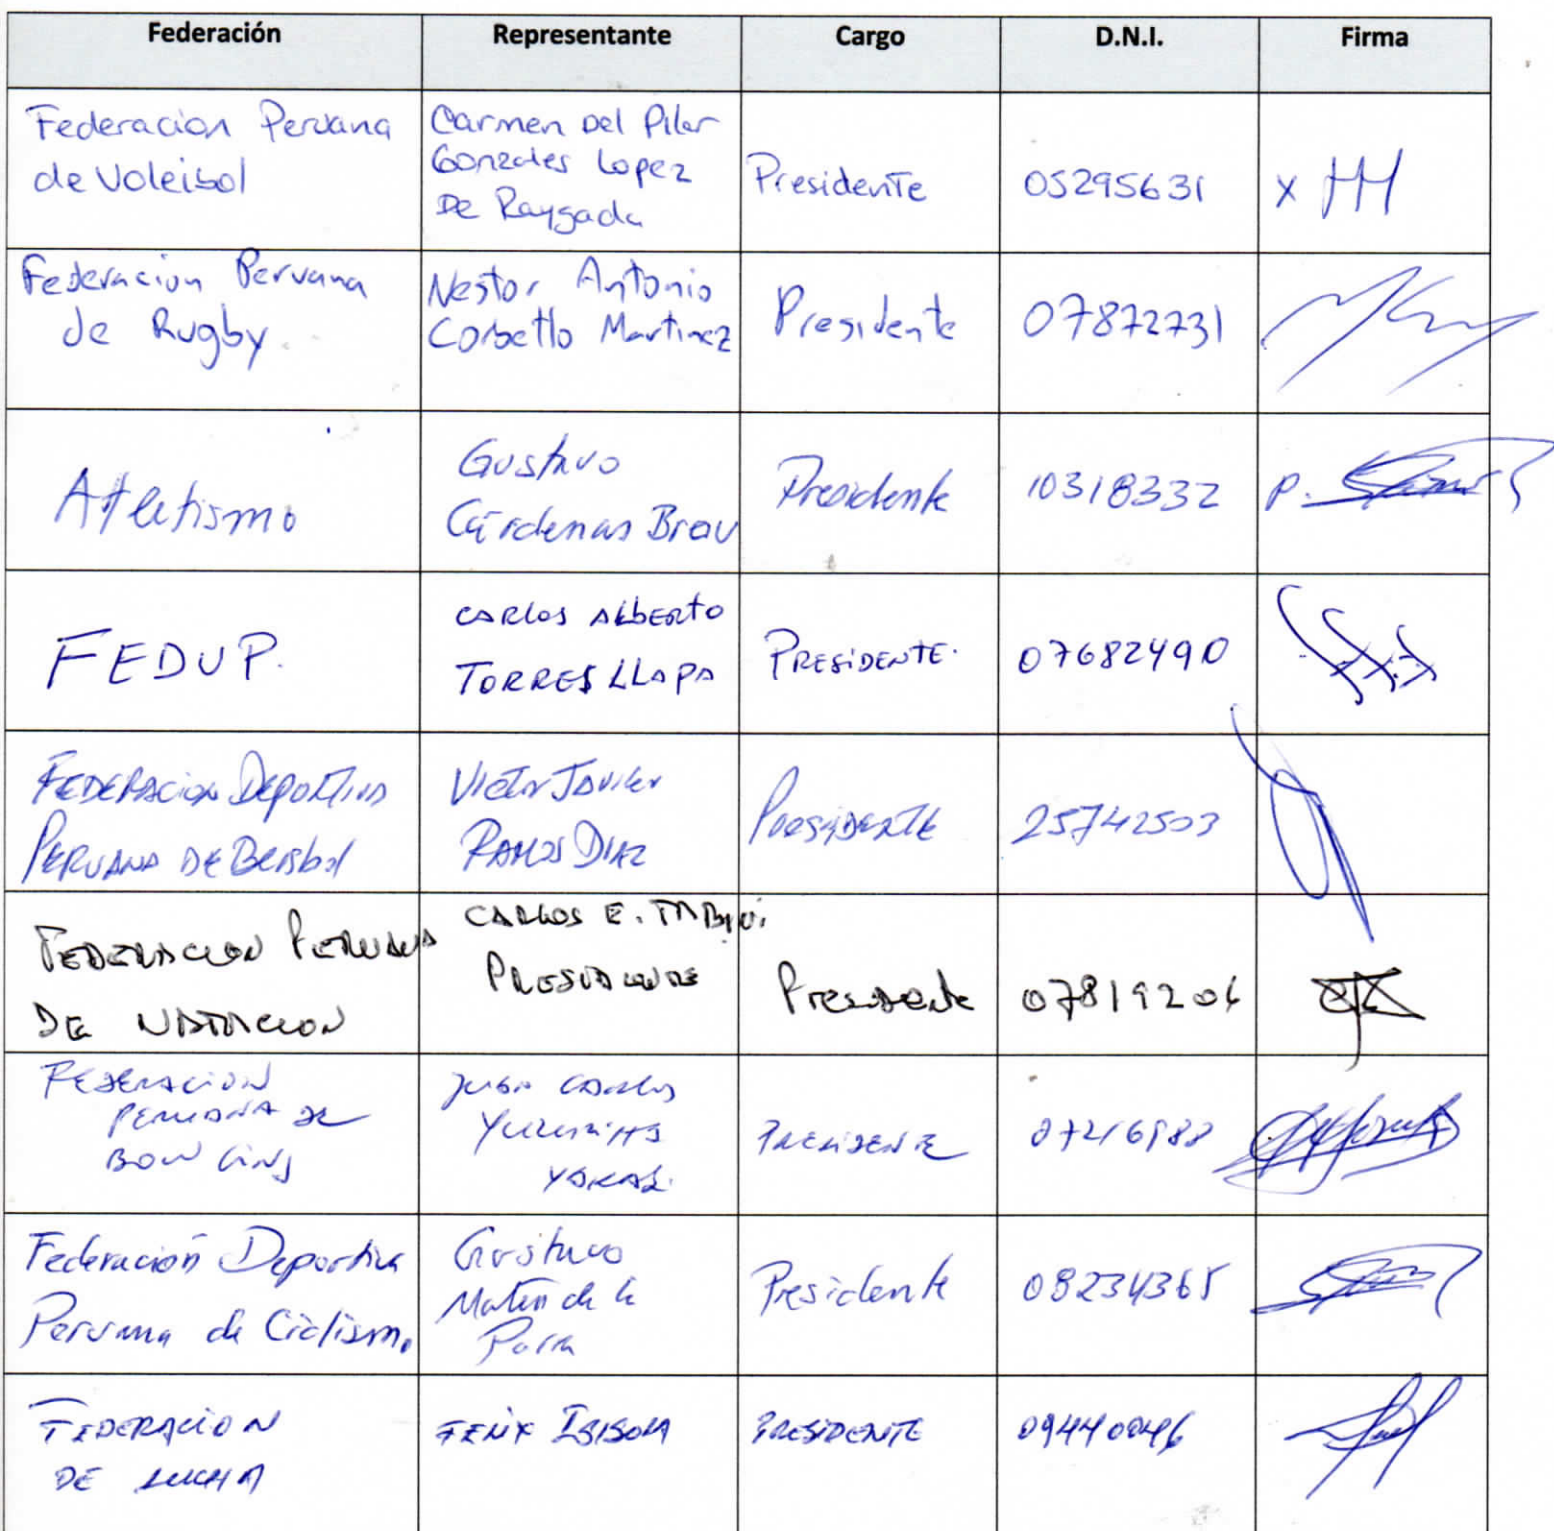 Federación Representante Cargo D.N.I. Firma
Federacion Peruana
de Voleibol
Carmen Del Pilar
Gonzales Lopez
De Raygada
Presidente
05295631
x
Federacion Peruana
de Rugby
Nestor Antonio
Corbetto Martinez
Presidente
07872731
Atletismo
Gustavo
Cárdenas Brou
Presidente
10318332
P.
FEDUP.
CARLOS ALBERTO
TORRES LLAPA
PRESIDENTE.
07682490
FEDERACION DEPORTIVA
PERUANA DE Beisbol
Victor Javier
RAMOS DIAZ
PRESIDENTE
25742503
FEDERACION PERUANA
DE NATACION
CARLOS E.
PRESIDENTE
Presidente
FEDERACION
PERUANA DE
BOWLING
JUAN CARLOS
PRESIDENTE
Federación Deportiva
Peruana de Ciclismo
Gustavo
de la
Presidente
08234365
FEDERACION
DE LUCHA
PRESIDENTE